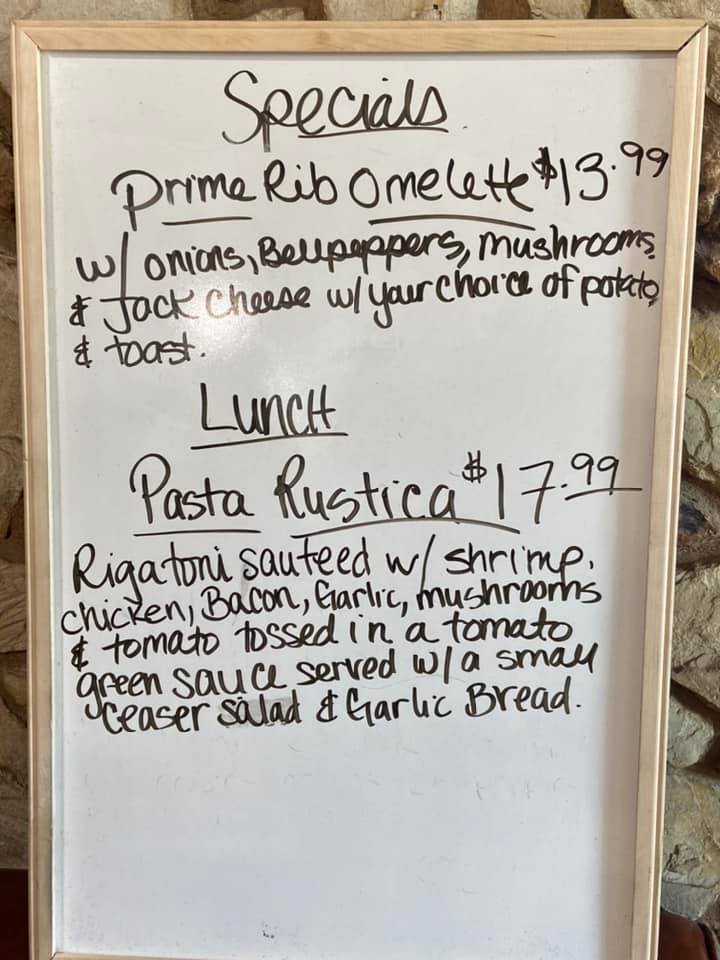 Specials
Prime Rib Omelette $13.99
w/ onions, Bellpeppers, mushrooms
& Jack Cheese w/ your choice of potato
& toast.
Lunch
Pasta Rustica $17.99
Rigatoni sauteed w/ shrimp,
chicken, Bacon, Garlic, mushrooms
& tomato tossed in a tomato
green sauce served w/ a small
Ceaser salad & Garlic Bread.